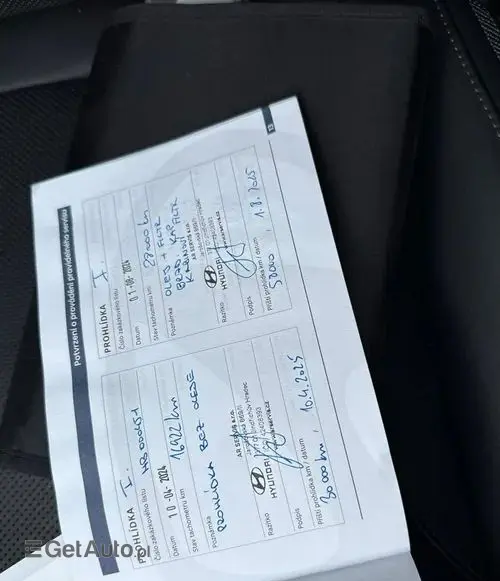 Potvrzení o provádění pravidelného servisu
PROHLÍDKA I.
Číslo zakázkového listu
Datum 10-04-2024
Stav tachometru km 16422 km
Poznámka
PROHLÍDKA BEZ OLEJE
AR SERVIS s.r.o.
HYUNDAI
Razítko
Podpis
Příští prohlídka km / datum
30 000 km, 10.4.2025
PROHLÍDKA I.
Číslo zakázkového listu
Datum 01-08-2024
Stav tachometru km
Poznámka OLEJ + FILTR
KABINOVÝ
AR SERVIS s.r.o.
HYUNDAI
Razítko
Podpis
Příští prohlídka km / datum
1.8.2025
GetAuto.pl